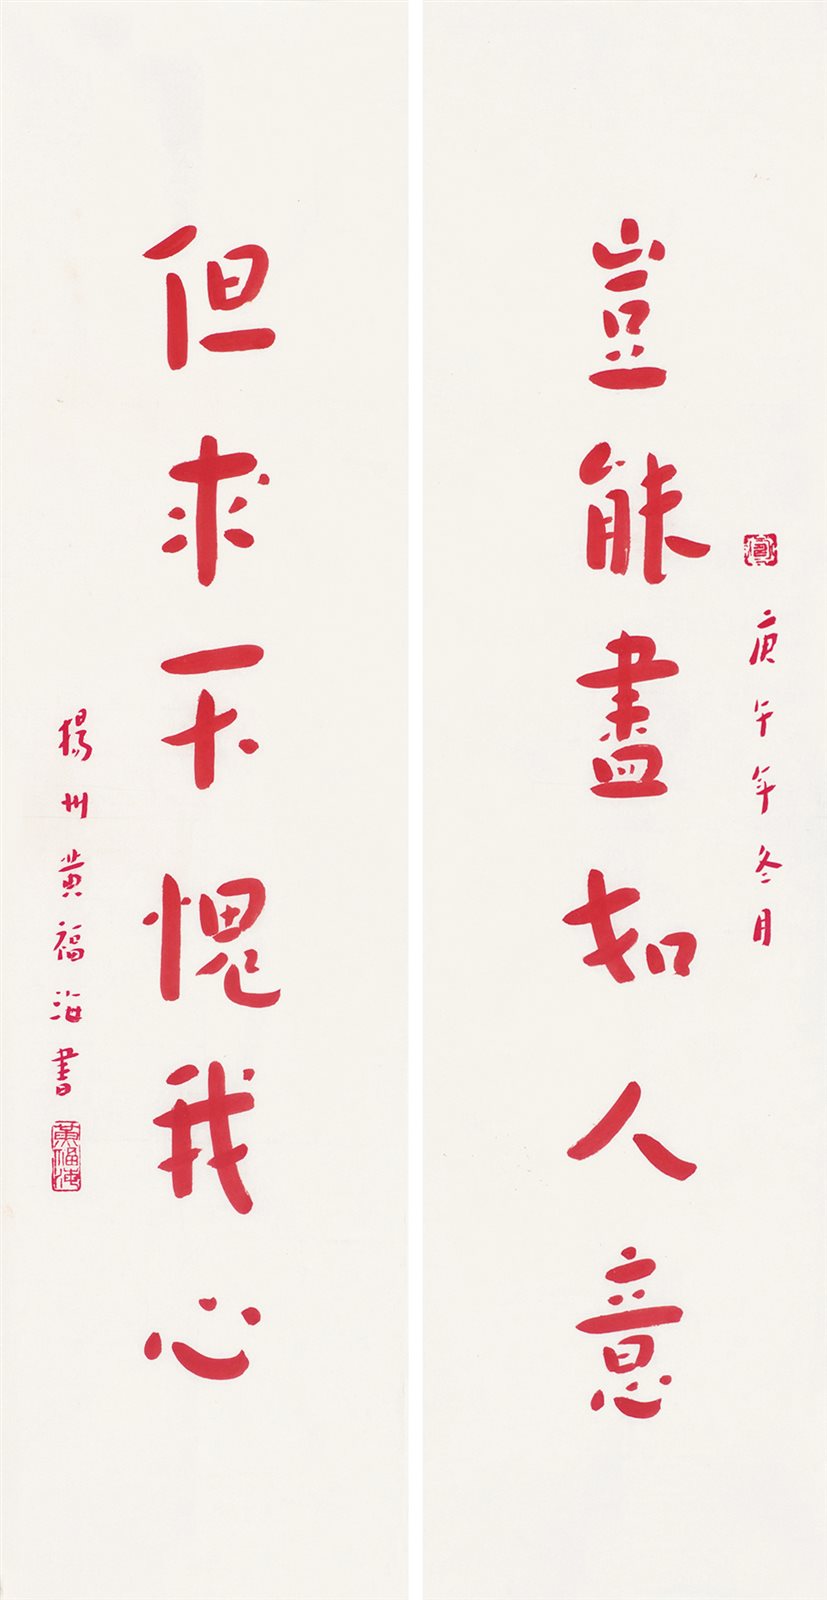 豈能盡如人意
庚午年冬月
但求不愧我心
揚州黄福海書
黃福海